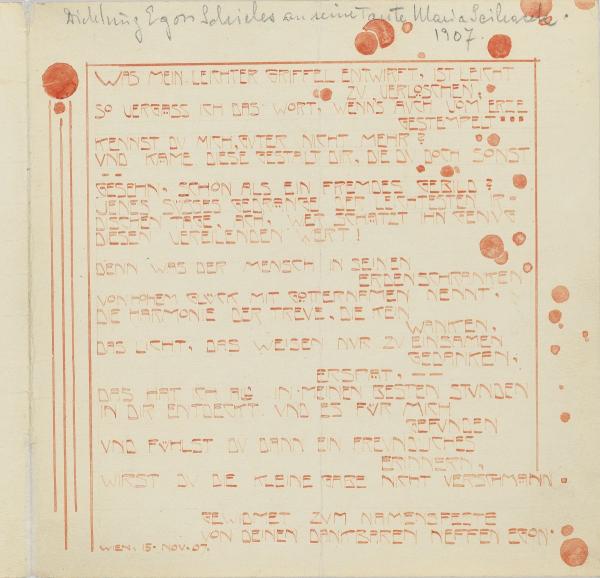 Dichtung Egon Schieles an seine Tante Maria
1907.
WAS MEIN LEICHTER GRIFFEL ENTWIRFT, IST LEICHT
ZU VERLÖSCHEN,
SO VERGASS ICH DAS WORT, WENN'S AUCH VOM ERZE
GESTEMPELT
KENNST DU MICH, GUTER NICHT MEHR?
UND KÄME DIESE GESTALT DIR, DIE DU DOCH SONST
GESEHN, SCHON ALS EIN FREMDES GEBILD?
JENES SÜSSES GEDRÄNGE DER LEICHTESTEN IR-
DISCHEN TAGE, ACH, WER SCHÄTZT IHN GENUG
DIESEN VEREILENDEN WERT!
DENN WAS DER MENSCH IN SEINEN
ERDENSCHRANKEN
VON HOHEM GLÜCK MIT GÖTTERNAMEN NENNT,
DIE HARMONIE DER TREUE, DIE KEIN
WANKEN,
DAS LICHT, DAS WEISEN NUR ZU EINSAMEN
GEDANKEN,
ERSPÄT, ——
DAS HAT ICH ALL IN MEINEN BESTEN STUNDEN
IN DIR ENTDECKT UND ES FÜR MICH
GEFUNDEN
UND FÜHLST DU DANN EIN FREUNDLICHES
ERINNERN,
WIRST DU DIE KLEINE GABE NICHT
GEWIDMET ZUM NAMENSFESTE
VON DEINEN DANKBAREN NEFFEN EGON.
WIEN, 15. NOV. 07.